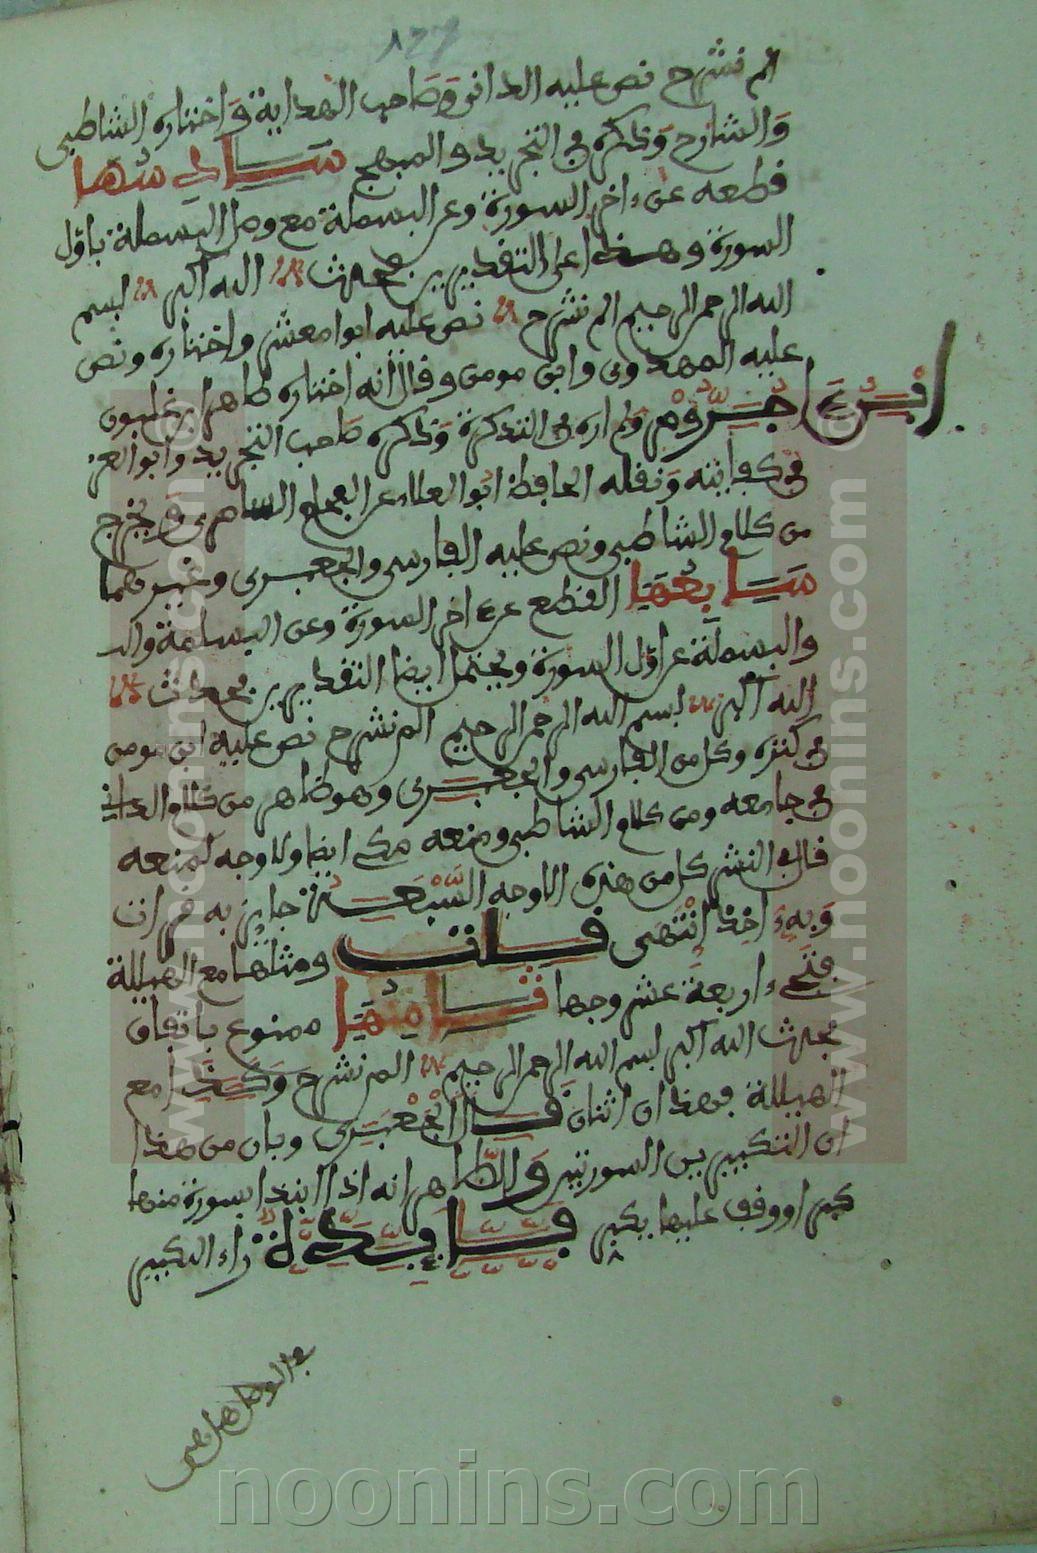 الم نشرح نص عليه الداني وصاحب الهداية واختاره الشاطبي
والشارح وذكره في التجريد والمبهج سادسها
قطعه عن ءاخر السورة وعن البسملة مع وصل البسملة باول
السورة وهذا على التقديرين فحدث الله اكبر بسم
الله الرحمن الرحيم الم نشرح نص عليه ابوا معشر واختاره ونص
عليه المهدوي وابن مومن وقال انه اختاره طاهر ابن غلبون
ولم اره في التذكرة وذكره صاحب التجريد وابوا العز
في كفايته ونقله الحافظ ابو العلاء عن الفحام والسامري ويخرج
من كلام الشاطبي ونص عليه الفارسي والجعبري وغيرهما
سابعها القطع عن ءاخر السورة وعن البسملة
والبسملة عن اول السورة ويحتمل ايضا التقديرين فحدث
الله اكبر بسم الله الرحمن الرحيم الم نشرح نص عليه ابن مومن
في كنزه وكل من الفارسي والجعبري وهو ظاهر من كلام الداني
في جامعه ومن كلام الشاطبي ومنعه مكي ايضا ولا وجه لمنعه
قال في النشر كل من هذه الاوجه السبعة جايز به قرات
وبه ءاخذ انتهى قلت ومثلها مع الهيللة
فتح ءاربعة عشر وجها ثامنها ممنوع باتفاق
فحدث الله اكبر بسم الله الرحمن الرحيم الم نشرح وكذا مع
الهيللة فهذان اثنان قال الجعبري وبان من هذا
ان التكبير بين السورتين والظاهر انه اذا ابتدا بسورة منها
كبر او وقف عليها يكبر فايدة زاد التكبير
noonins.com
www.noonins.com ©
www.noonins.com ©